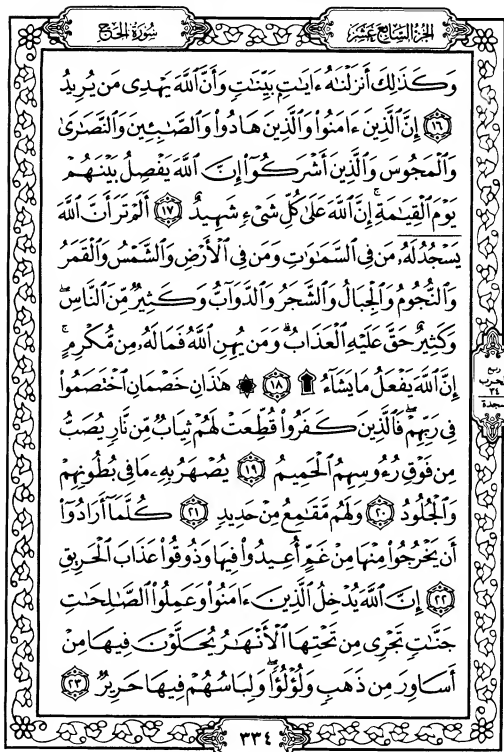 سُورَةُ الحَجِّ الجُزْءُ السَّابِعَ عَشَرَ
وَكَذَٰلِكَ أَنزَلْنَٰهُ ءَايَٰتٍۭ بَيِّنَٰتٍ وَأَنَّ ٱللَّهَ يَهْدِى مَن يُرِيدُ
﴿١٦﴾ إِنَّ ٱلَّذِينَ ءَامَنُوا۟ وَٱلَّذِينَ هَادُوا۟ وَٱلصَّٰبِـِٔينَ وَٱلنَّصَٰرَىٰ
وَٱلْمَجُوسَ وَٱلَّذِينَ أَشْرَكُوٓا۟ إِنَّ ٱللَّهَ يَفْصِلُ بَيْنَهُمْ
يَوْمَ ٱلْقِيَٰمَةِ ۚ إِنَّ ٱللَّهَ عَلَىٰ كُلِّ شَىْءٍ شَهِيدٌ ﴿١٧﴾ أَلَمْ تَرَ أَنَّ ٱللَّهَ
يَسْجُدُ لَهُۥ مَن فِى ٱلسَّمَٰوَٰتِ وَمَن فِى ٱلْأَرْضِ وَٱلشَّمْسُ وَٱلْقَمَرُ
وَٱلنُّجُومُ وَٱلْجِبَالُ وَٱلشَّجَرُ وَٱلدَّوَآبُّ وَكَثِيرٌ مِّنَ ٱلنَّاسِ ۖ
وَكَثِيرٌ حَقَّ عَلَيْهِ ٱلْعَذَابُ ۗ وَمَن يُهِنِ ٱللَّهُ فَمَا لَهُۥ مِن مُّكْرِمٍ ۚ
إِنَّ ٱللَّهَ يَفْعَلُ مَا يَشَآءُ ۩ ﴿١٨﴾ ۞ هَٰذَانِ خَصْمَانِ ٱخْتَصَمُوا۟
فِى رَبِّهِمْ ۖ فَٱلَّذِينَ كَفَرُوا۟ قُطِّعَتْ لَهُمْ ثِيَابٌ مِّن نَّارٍ يُصَبُّ
مِن فَوْقِ رُءُوسِهِمُ ٱلْحَمِيمُ ﴿١٩﴾ يُصْهَرُ بِهِۦ مَا فِى بُطُونِهِمْ
وَٱلْجُلُودُ ﴿٢٠﴾ وَلَهُم مَّقَٰمِعُ مِنْ حَدِيدٍ ﴿٢١﴾ كُلَّمَآ أَرَادُوٓا۟
أَن يَخْرُجُوا۟ مِنْهَا مِنْ غَمٍّ أُعِيدُوا۟ فِيهَا وَذُوقُوا۟ عَذَابَ ٱلْحَرِيقِ
﴿٢٢﴾ إِنَّ ٱللَّهَ يُدْخِلُ ٱلَّذِينَ ءَامَنُوا۟ وَعَمِلُوا۟ ٱلصَّٰلِحَٰتِ
جَنَّٰتٍ تَجْرِى مِن تَحْتِهَا ٱلْأَنْهَٰرُ يُحَلَّوْنَ فِيهَا مِنْ
أَسَاوِرَ مِن ذَهَبٍ وَلُؤْلُؤًا ۖ وَلِبَاسُهُمْ فِيهَا حَرِيرٌ ﴿٢٣﴾
ربع
الحزب
٣٤
سجدة
٣٣٤